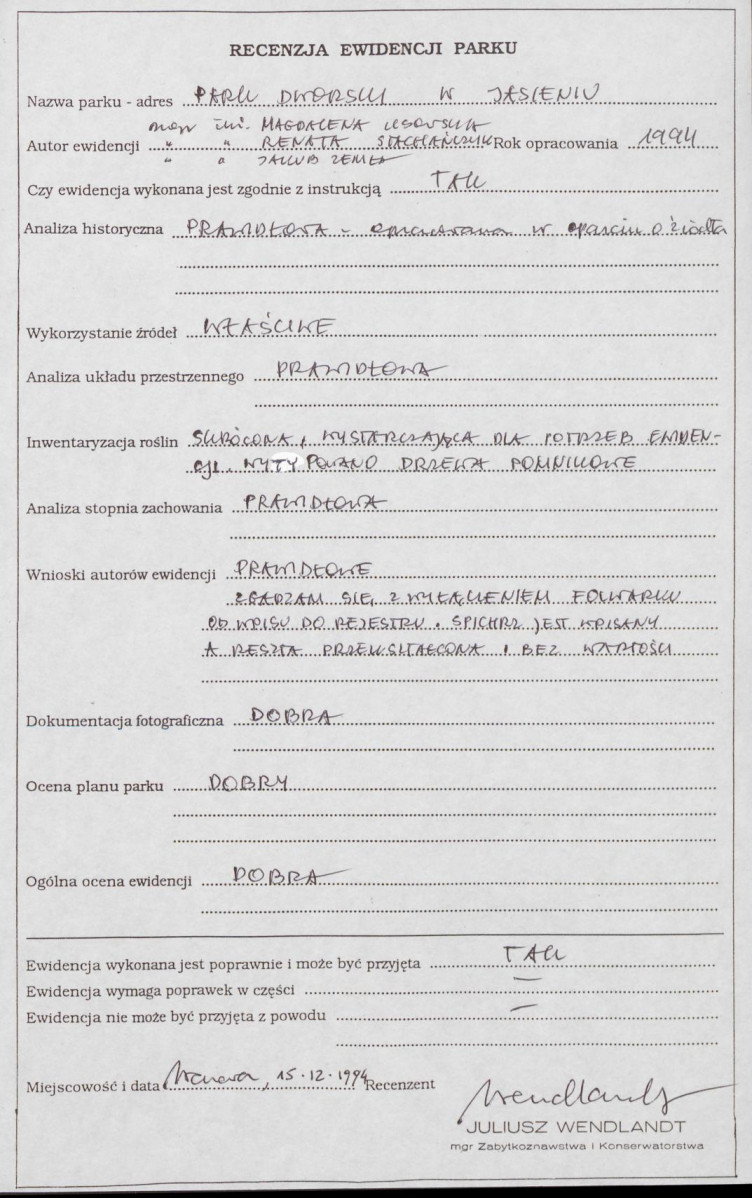 RECENZJA EWIDENCJI PARKU
Nazwa parku - adres PARK DWORSKI W JASIENIU
mgr inż. MAGDALENA
Autor ewidencji " " RENATA STACHAŃCZYK Rok opracowania 1994
" " JAKUB ZEMŁA
Czy ewidencja wykonana jest zgodnie z instrukcją TAK
Analiza historyczna PRAWIDŁOWA - opracowana w oparciu o źródła
Wykorzystanie źródeł WŁAŚCIWE
Analiza układu przestrzennego PRAWIDŁOWA
Inwentaryzacja roślin SKRÓCONA, WYSTARCZAJĄCA DLA POTRZEB EWIDEN-
CJI. WYTYPOWANO DRZEWA POMNIKOWE
Analiza stopnia zachowania PRAWIDŁOWA
Wnioski autorów ewidencji PRAWIDŁOWE
ZGADZAM SIĘ Z WYŁĄCZENIEM FOLWARKU
OD WPISU DO REJESTRU. SPICHRZ JEST WPISANY
A RESZTA PRZEKSZTAŁCONA I BEZ WARTOŚCI
Dokumentacja fotograficzna DOBRA
Ocena planu parku DOBRY
Ogólna ocena ewidencji DOBRA
Ewidencja wykonana jest poprawnie i może być przyjęta TAK
Ewidencja wymaga poprawek w części —
Ewidencja nie może być przyjęta z powodu —
Miejscowość i data 15.12.1994 Recenzent
Wendlandt
JULIUSZ WENDLANDT
mgr Zabytkoznawstwa i Konserwatorstwa